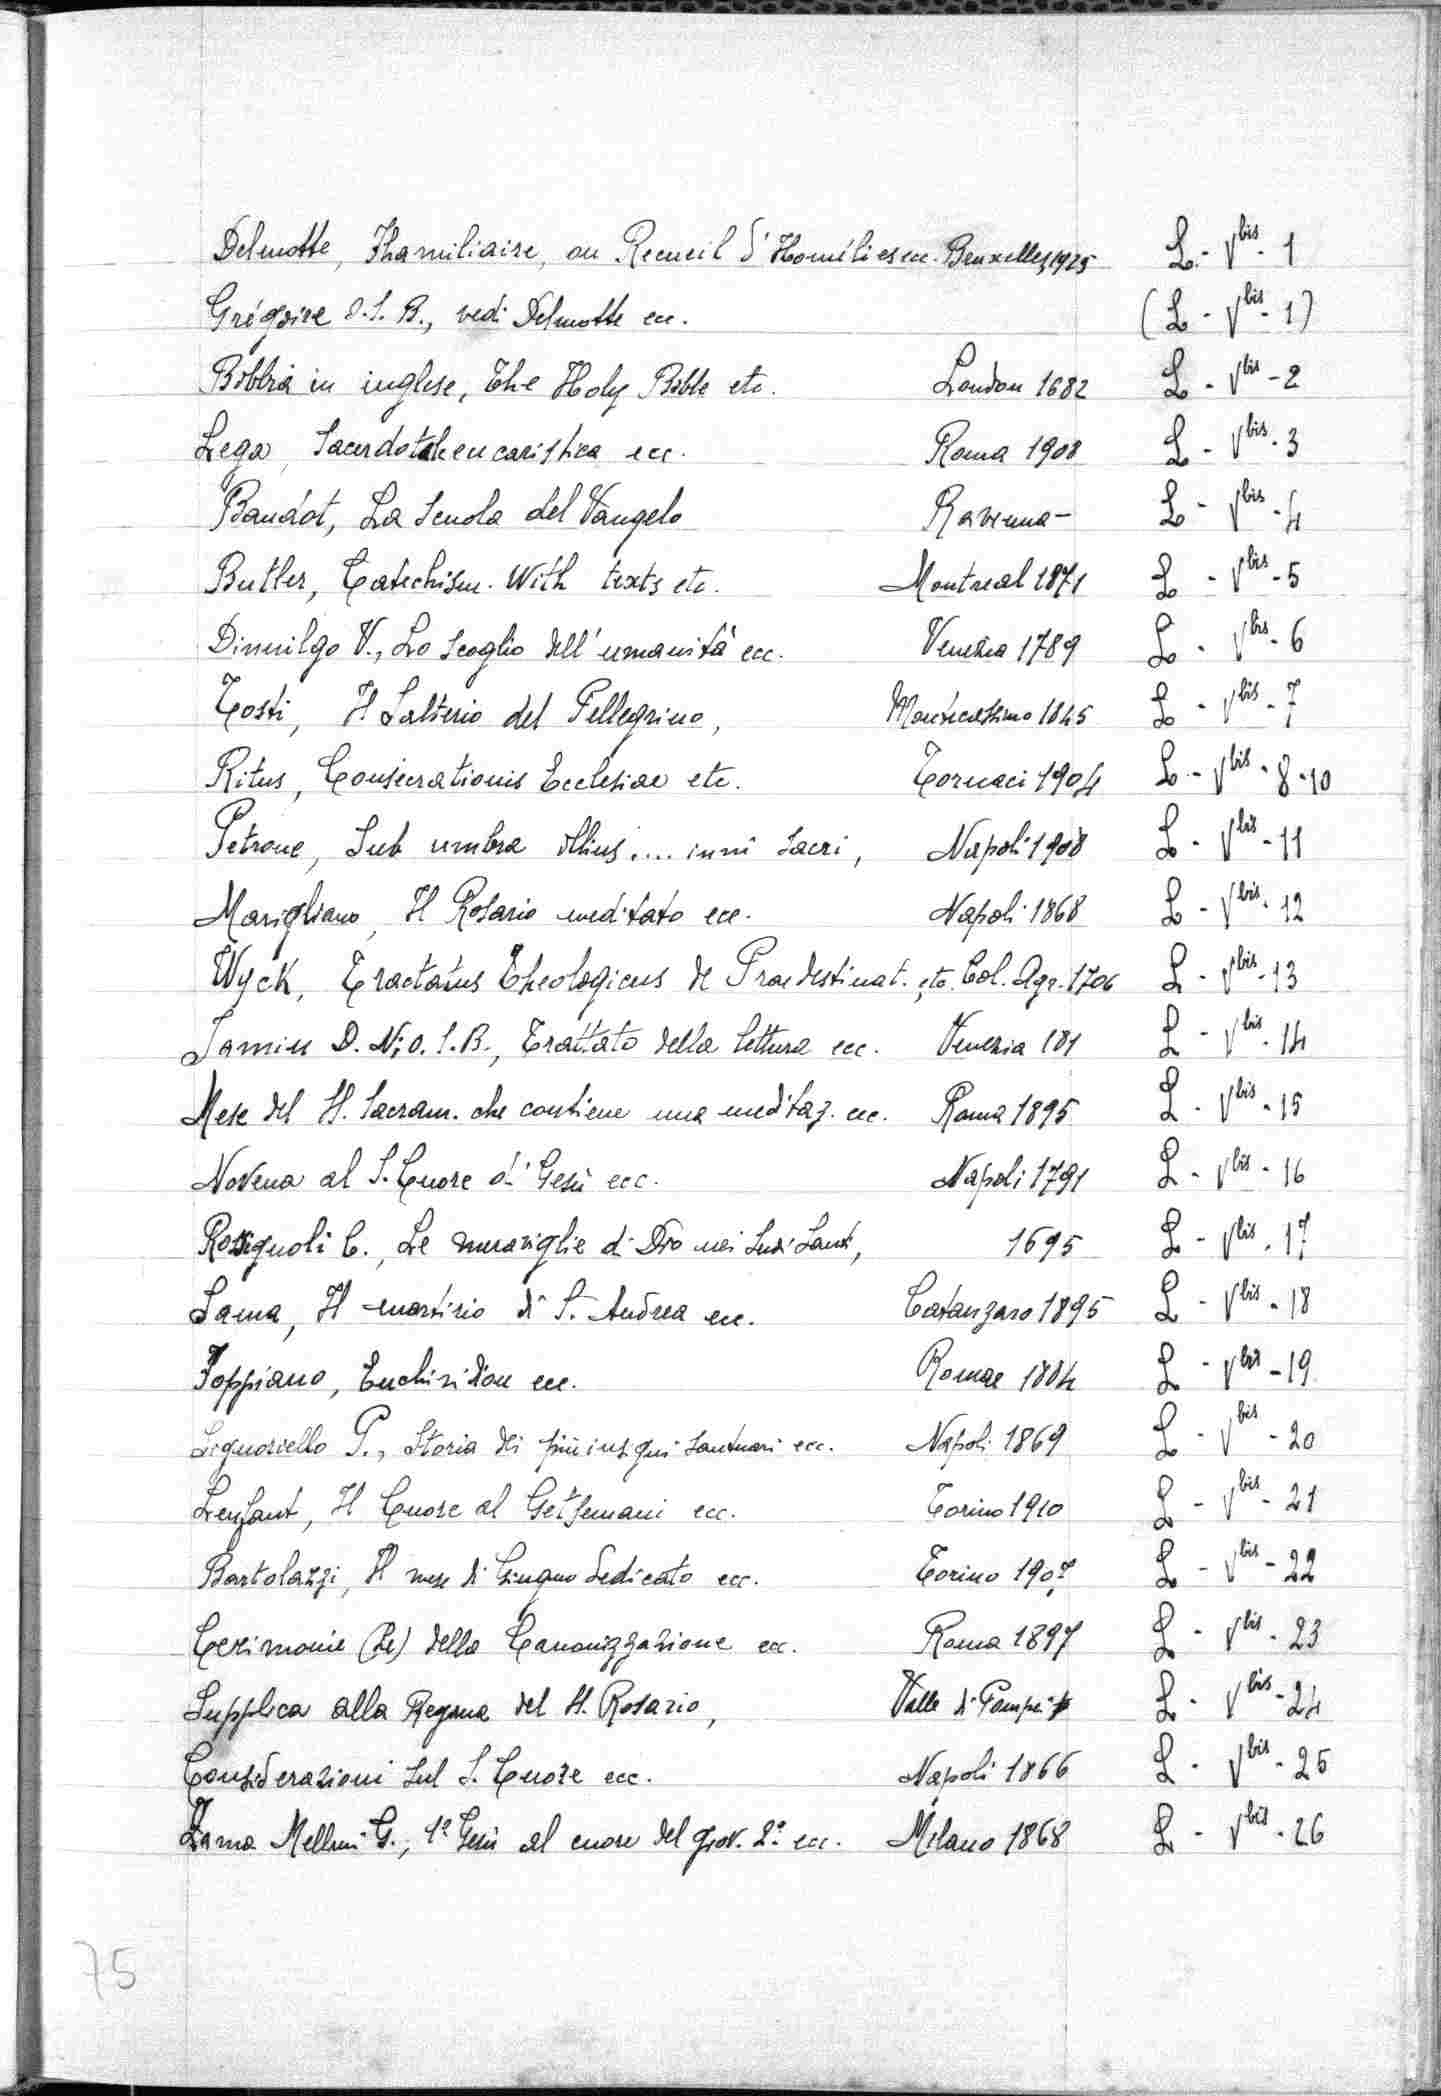 Delmotte, Thamiliaire, ou Recueil d'Homélies ecc. Bruxelles, 1925 L - V bis - 1
Grégoire O.S.B., vedi Delmotte ecc. (L - V bis - 1)
Bibbia in inglese, The Holy Bible etc. London 1682 L - V bis - 2
Lega Sacerdotale eucaristica ecc. Roma 1908 L - V bis - 3
Baudot, La Scuola del Vangelo Ravenna - L - V bis - 4
Butler, Catechism. With texts etc. Montreal 1871 L - V bis - 5
Dinuilgo V., Lo Scoglio dell'umanità ecc. Venezia 1789 L - V bis - 6
Tosti, Il Salterio del Pellegrino, Montecassino 1845 L - V bis - 7
Ritus, Consecrationis Ecclesiae etc. Tornaci 1904 L - V bis - 8-10
Petrone, Sub umbra illius.... inni sacri, Napoli 1908 L - V bis - 11
Marigliano, Il Rosario meditato ecc. Napoli 1868 L - V bis - 12
Wyck, Tractatus Theologicus de Praedestinat. etc. Col. Agr. 1706 L - V bis - 13
Jamin D. N; O.S.B., Trattato della lettura ecc. Venezia 181 L - V bis - 14
Mese del SS. Sacram. che contiene una meditaz. ecc. Roma 1895 L - V bis - 15
Novena al S. Cuore di Gesù ecc. Napoli 1791 L - V bis - 16
Rosignoli C., Le meraviglie di Dio nei Suoi Santi, 1695 L - V bis - 17
Sama, Il martirio di S. Andrea ecc. Catanzaro 1895 L - V bis - 18
Toppiano, Enchiridion ecc. Romae 1884 L - V bis - 19
Liguoriello P., Storia dei più insigni santuari ecc. Napoli 1869 L - V bis - 20
Lenfant, Il Cuore al Getsemani ecc. Torino 1910 L - V bis - 21
Bartolazzi, Il mese di Giugno dedicato ecc. Torino 1907 L - V bis - 22
Cerimonie (Le) della Canonizzazione ecc. Roma 1897 L - V bis - 23
Supplica alla Regina del SS. Rosario, Valle di Pompei L - V bis - 24
Considerazioni sul S. Cuore ecc. Napoli 1866 L - V bis - 25
Zama Mellini G., 1º Gesù al cuore del giov. 2º ecc. Milano 1868 L - V bis - 26
75